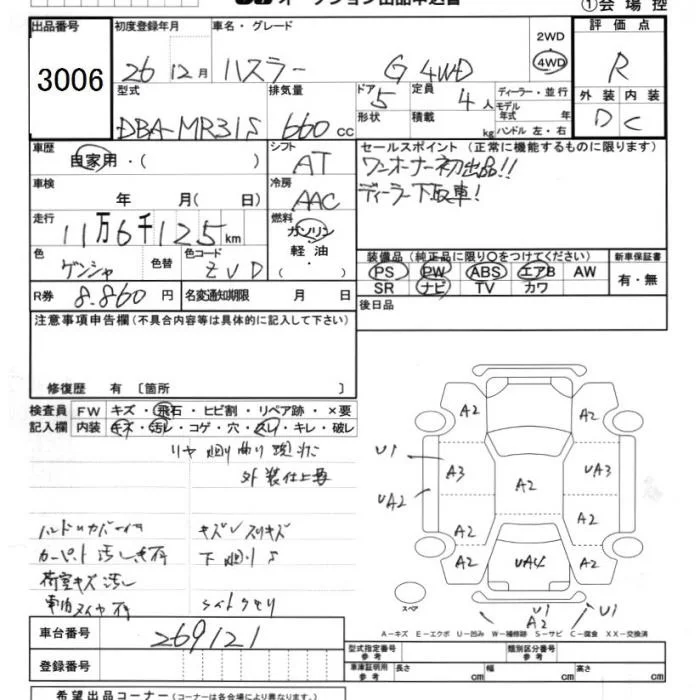 オークション出品申込書
①会場控
出品番号 初度登録年月 車名・グレード 2WD 評価点
3006 26 12月 ハスラー G 4WD 4WD R
型式 排気量 ドア 5 定員 4人 ディーラー・並行 外装 内装
DBA-MR31S 660 cc 形状 積載 kg モデル年式 年 D C
ハンドル 左・右
車歴 自家用・( ) シフト AT セールスポイント (正常に機能するものに限ります)
ワンオーナー初出品!!
車検 年 月( 日) 冷房 AAC ディーラー下取車!
走行 11万6千125km 燃料 ガソリン
軽油
・
色 ゲンシャ 色替 色コード ZVD 装備品 (純正品に限り○をつけてください) 新車保証書
PS PW ABS エアB AW 有・無
SR ナビ TV カワ
R券 8.860円 名変通知期限 月 日 後日品
注意事項申告欄 (不具合内容等は具体的に記入して下さい)
修復歴 有 〔箇所 〕
検査員 FW キズ・飛石・ヒビ割・リペア跡・×要
記入欄 内装 キズ・汚レ・コゲ・穴・スレ・キレ・破レ
外装仕上要
キズ
荷室キズ 汚レ
ライトクモリ
A2 A2
U1 A3 UA3
UA2 A2
A2 A2
A2 UA4 A2
スペア
U1 U1
A2
A-キズ E-エクボ U-凹み W-補修跡 S-サビ C-腐食 XX-交換済
車台番号 269121
型式指定番号 参考 類別区分番号 参考
登録番号 車庫証明用 参考 長さ cm 幅 cm 高さ cm
希望出品コーナー (コーナーは各会場により異なります。)